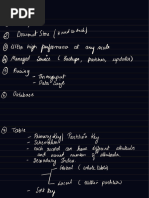 Document Store (
Ultra high performance at any scale
Managed Service ( Backups, patches, updates)
Pricing
- Throughput
- Data Storage
Database
Table
- Primary Key / Partition Key
- Schemaless
- each record can have different attributes and varied number of attributes
- Secondary Index
- Global (whole table)
- Local (within partition)
- Sort Key